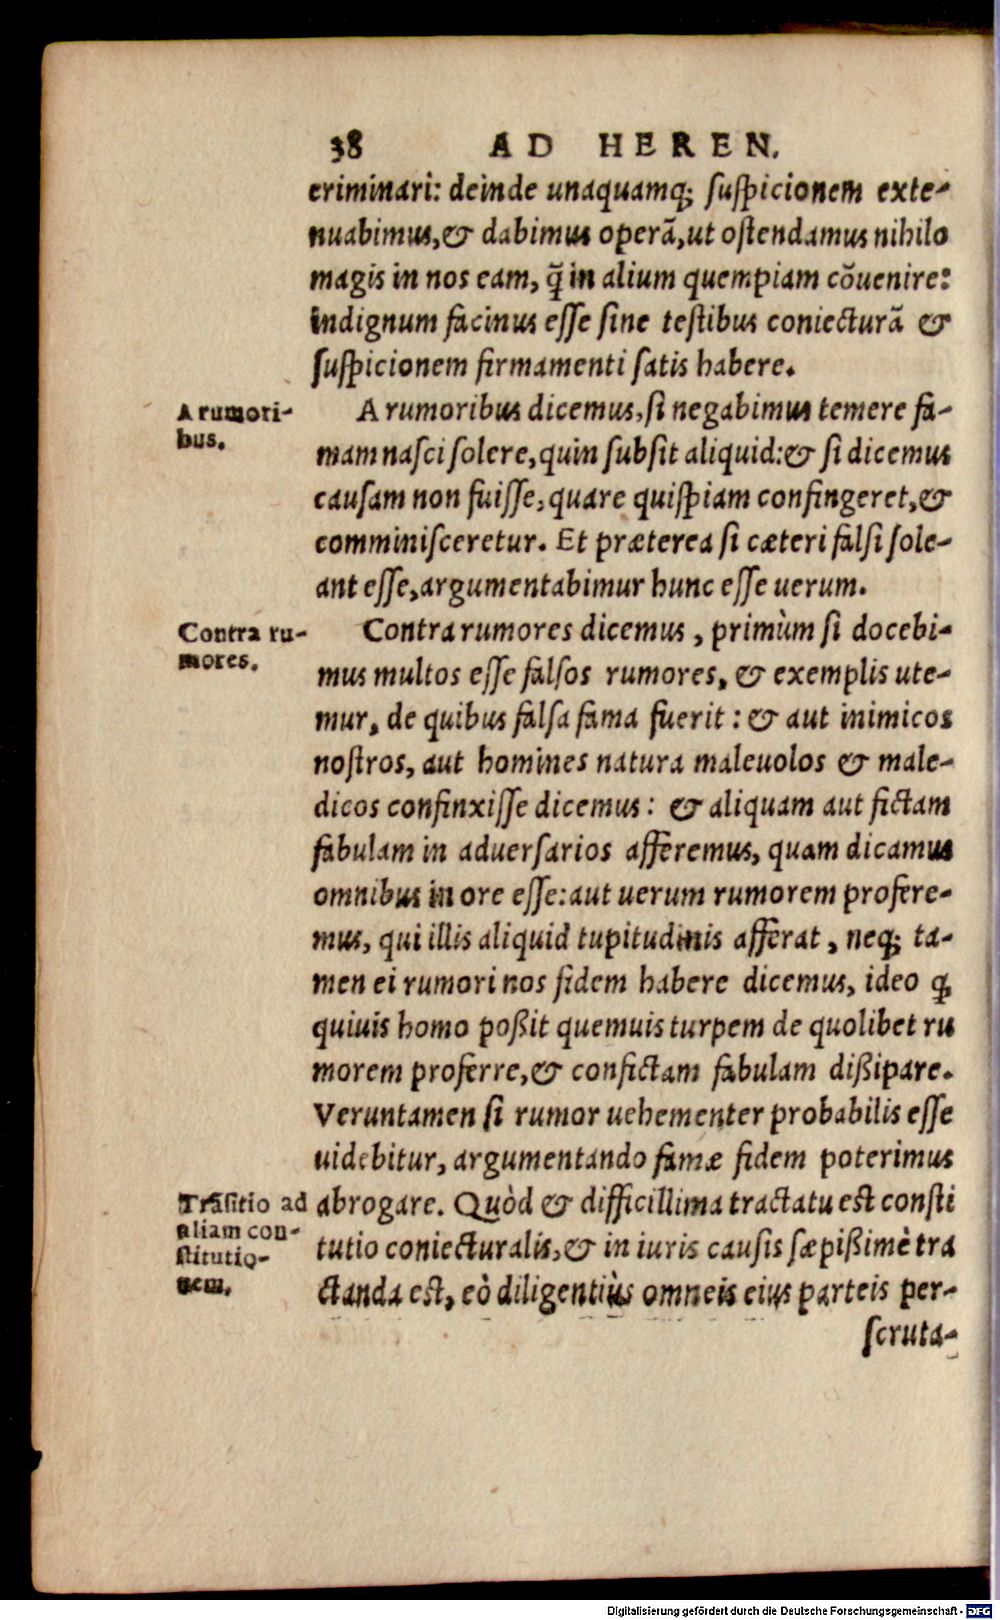 38 AD HEREN.
criminari: deinde unaquamq; suspicionem exte-
nuabimus, & dabimus operã, ut ostendamus nihilo
magis in nos eam, q̃ in alium quempiam cõuenire:
indignum facinus esse sine testibus coniecturã &
suspicionem firmamenti satis habere.
A rumori-
bus.
A rumoribus dicemus, si negabimus temere fa-
mam nasci solere, quin subsit aliquid: & si dicemus
causam non fuisse, quare quispiam confingeret, &
comminisceretur. Et præterea si cæteri falsi sole-
ant esse, argumentabimur hunc esse uerum.
Contra ru-
mores.
Contra rumores dicemus, primùm si docebi-
mus multos esse falsos rumores, & exemplis ute-
mur, de quibus falsa fama fuerit: & aut inimicos
nostros, aut homines natura maleuolos & male-
dicos confinxisse dicemus: & aliquam aut fictam
fabulam in aduersarios afferemus, quam dicamus
omnibus in ore esse: aut uerum rumorem profere-
mus, qui illis aliquid tupitudinis afferat, neq; ta-
men ei rumori nos fidem habere dicemus, ideo q;
quiuis homo poßit quemuis turpem de quolibet ru
morem proferre, & confictam fabulam dißipare.
Veruntamen si rumor uehementer probabilis esse
uidebitur, argumentando famæ fidem poterimus
Trãsitio ad
aliam con-
stitutio-
nem.
abrogare. Quòd & difficillima tractatu est consti
tutio coniecturalis, & in iuris causis sæpißimè tra
ctanda est, eò diligentiùs omneis eius parteis per-
scruta-
Digitalisierung gefördert durch die Deutsche Forschungsgemeinschaft - DFG